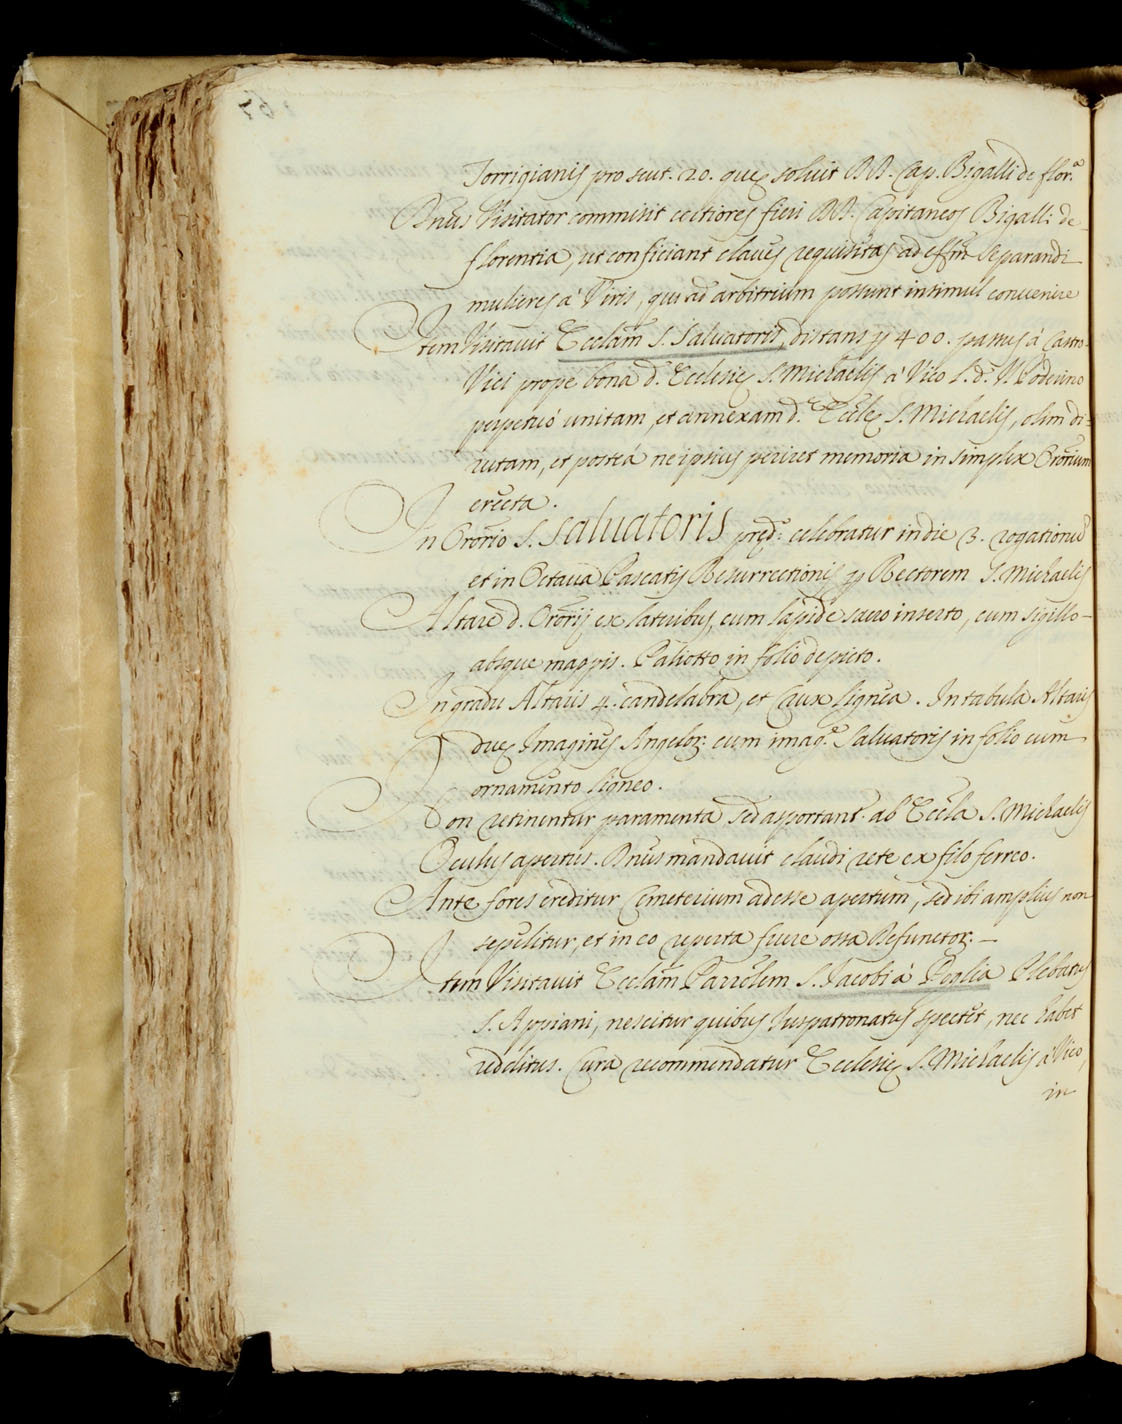 Torrigianis pro scut. 20. que solvit DD. Cap. Bigalli de flor.ª
Dnus Visitator commisit certiores fieri DD. Capitaneos Bigalli de
florentia, ut conficiant claves requisitas ad effm separandi
mulieres à Viris, qui ad arbitrium possunt insimul convenire
Item Visitavit Ecclam S. Salvatoris, distans p 400. passus à Castro
Vici prope bona d. Ecclesie S. Michaelis à Vico
perpetuò unitam, et annexam d. Eccle S. Michaelis, olim di-
rutam, et posteà ne ipsius periret memoria in simplex Orõrium
erecta.
In Orõrio S. Salvatoris pred: celebratur in die 3. rogationum
et in Octava Pascatis Resurrectionis p Rectorem S. Michaelis
Altare d. Orõrij ex lateribus, cum lapide sacro inserto, cum sigillo
absque mappis. Paliotto in folio depicto.
In gradu Altaris 4. candelabra, et Crux lignea. In tabula Altaris
due Imagines Angelor: cum imag.e Salvatoris in folio cum
ornamento ligneo.
Non retinentur paramenta sed asportant. ab Eccla S. Michaelis
Oculus apertus. Dnus mandavit claudi rete ex filo ferreo.
Ante fores creditur Cemeterium adesse apertum, sed ibi amplius non
sepelitur, et in eo reperta fuere ossa Defunctor:
Item Visitavit Ecclam Parrõlem S. Jacobi à Peglia Plebatus
S. Appiani, nescitur quibus Juspatronatus spectet, nec habet
redditus. Cura recommendatur Ecclesie S. Michaelis à Vico,
in